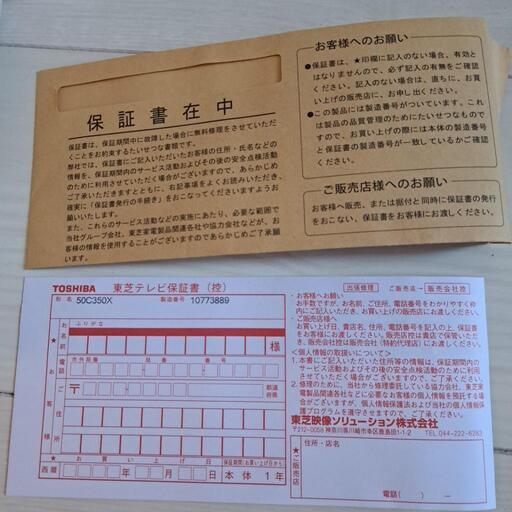 保証書在中
保証書は、保証期間中に故障した場合に無料修理をさせていただ
くことをお約束するたいせつな書類です。
弊社では、保証書にご記入いただいたお客様の住所・氏名などの
情報を、保証期間内のサービス活動およびその後の安全点検活動
のために利用させていただく場合がございますので、あらかじめご
了承いただきますとともに、右記事項をよくお読みいただき、
確実に「保証書発行の手続き」をおこなってくださいますようお
願いいたします。
また、これらのサービス活動の実施にあたり、必要な範囲で
当社グループ会社、東芝家電製品関連各社や協力会社などが、お
客様の情報を使用することがございますのであらかじめご了承願
います。
お客様へのお願い
●保証書は、★印欄に記入のない場合、有効と
はなりませんので、必ず記入の有無をご確認
ください。記入のない場合は、直ちに、お買
い上げの販売店に、お申し出ください。
●この製品には製造番号がついています。これ
は製品の品質管理のためにたいせつなもので
すので、お買い上げの際には本体の製造番号
と保証書の製造番号が一致しているかご確認
ください。
ご販売店様へのお願い
お客様へ販売、または据付と同時に保証書の発
行をおこない、保証書をお客様にお渡しください。
TOSHIBA 東芝テレビ保証書（控）
形名 50C350X 製造番号 10773889
★お客様
ふりがな
お名前
様
電話
市外局番 局番 番号
ご住所
〒
都道
府県
お買い上げ日 保証期間(お買い上げ日から)
西暦 年 月 日 本体1年
出張修理 ご販売店→販売会社控
・お客様へお願い
お手数ですが、お名前、ご住所、電話番号をわかりやすく枠
内にご記入いただき、お買い上げの販売店にお渡しください。
・ご販売店様へ
お買い上げ日、貴店名、住所、電話番号を記入の上、保証書を
お客様にお渡しください。販売店控は貴店で保管いた
だき、販売会社控を販売会社（特約代理店）にお渡しください。
＜個人情報の取扱いについて＞
1. 本書にご記入いただいた住所等の情報は、保証期間内の
サービス活動およびその後の安全点検活動のために利用
させていただく場合がございますので、ご了承ください。
2. 修理のために、当社から修理委託している協力会社、東芝家
電製品関連各社などに必要なお客様の個人情報を預託する場
合がございますが、個人情報保護法および当社の個人情報保
護プログラムを遵守させますので、ご了承ください。
東芝映像ソリューション株式会社
〒212-0058 神奈川県川崎市幸区鹿島田1-1-2 TEL 044-222-6283
★ご販売店
住所・店名
電話（ ）